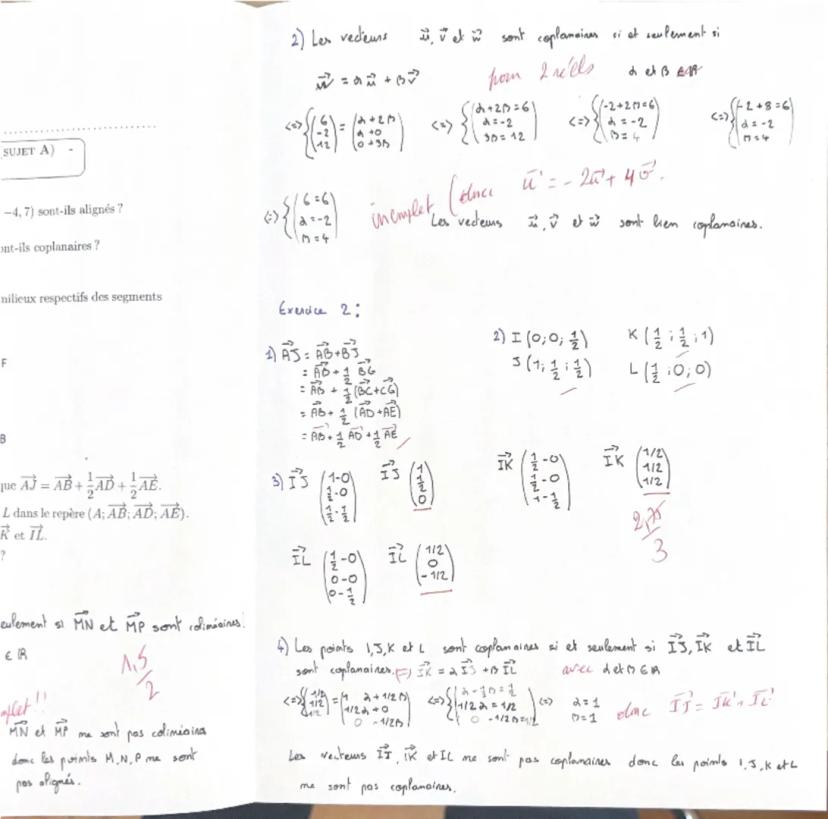 SUJET A)
−4, 7) sont-ils alignés ?
ont-ils coplanaires ?
milieux respectifs des segments
F
B
que AJ = AB + 1/2 AD + 1/2 AE.
L dans le repère (A; AB; AD; AE).
K et IL.
?
eulement si MN et MP sont colinéaires.
∈ IR
1,5/2
mplet !!
MN et MP ne sont pas colinéaires
donc les points M, N, P ne sont
pas alignés.
2) Les vecteurs u, v et w sont coplanaires si et seulement si
w = αu + βv pour 2 réels α et β ∈ IR
<=> { (6 -2 12) = (α+2β α+0 0+3β) <=> { (α+2β=6 α=-2 3β=12) <=> { (-2+2β=6 α=-2 β=4) <=> { (-2+8=6 α=-2 β=4)
<=> { (6=6 α=-2 β=4) incomplet (donc
Les vecteurs u, v et w sont bien coplanaires.
Exercice 2 :
1) AJ = AB + BJ
= AB + 1/2 BG
= AB + 1/2 (BC + CG)
= AB + 1/2 (AD + AE)
= AB + 1/2 AD + 1/2 AE
2) I (0; 0; 1/2) K (1/2 ; 1/2 ; 1)
J (1; 1/2 ; 1/2) L (1/2 ; 0; 0)
3) IJ (1-0 1/2-0 1/2-1/2) IJ (1 1/2 0) IK (1/2-0 1/2-0 1-1/2) IK (1/2 1/2 1/2)
2,75/3
IL (1/2-0 0-0 0-1/2) IL (1/2 0 -1/2)
4) Les points I, J, K et L sont coplanaires si et seulement si IJ, IK et IL
sont coplanaires. (=) IK = α IJ + β IL avec α et β ∈ IR
α=1 β=1 donc IJ = IK + IL
Les vecteurs IJ, IK et IL ne sont pas coplanaires donc les points I, J, K et L
ne sont pas coplanaires.